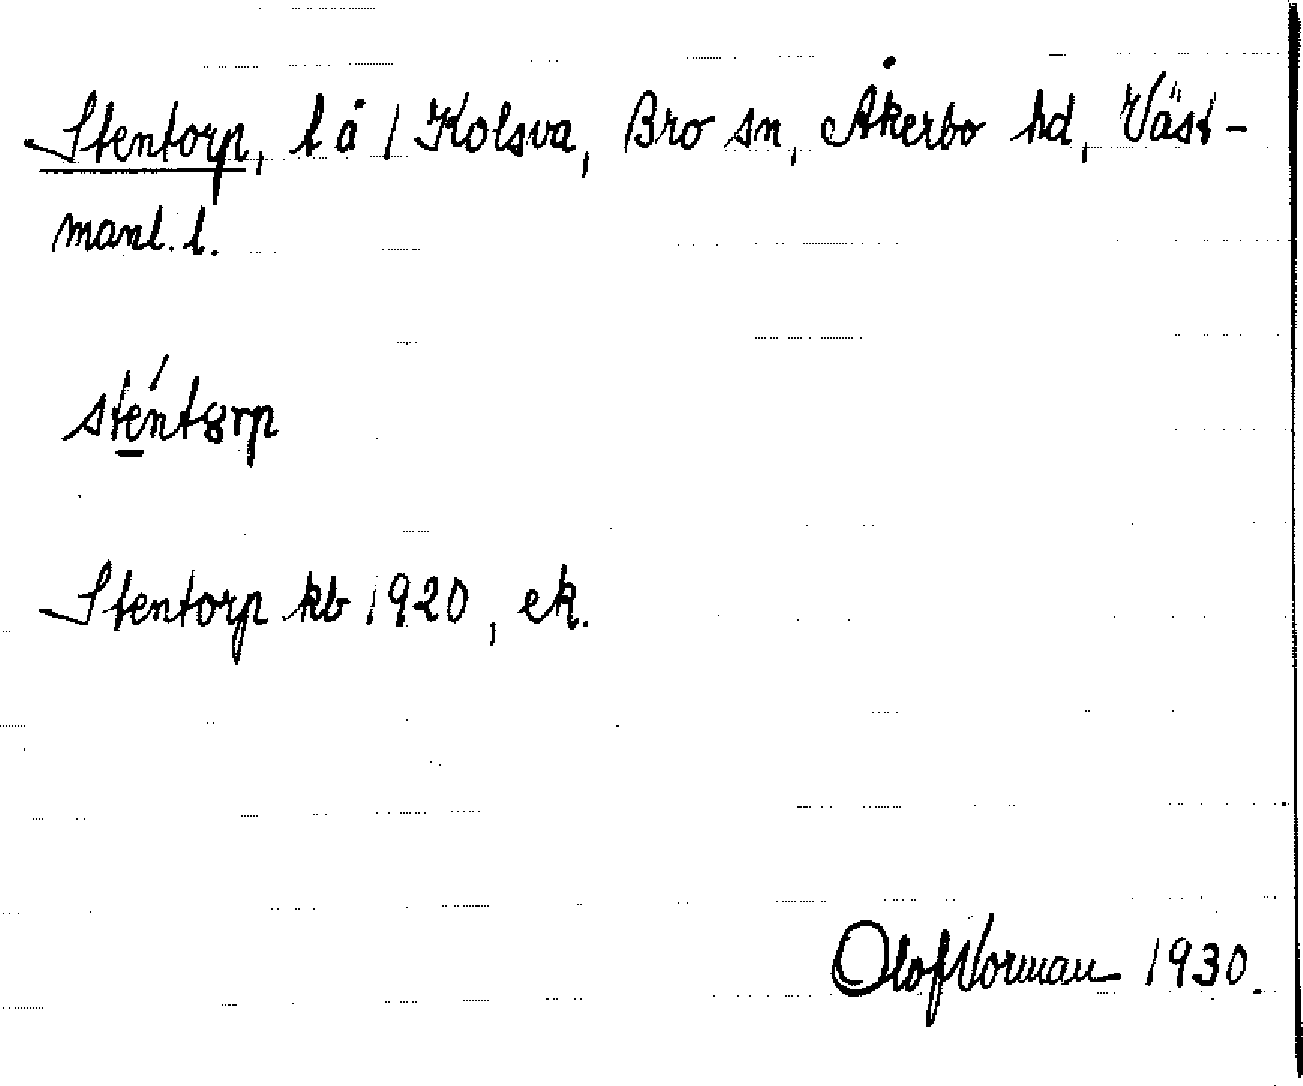 Stentorp, t å 1 Kolsva, Bro sn, Åkerbo hd, Väst-
manl. l.
sténtȣrp
Stentorp kb 1920, ek.
Olof Norman 1930.